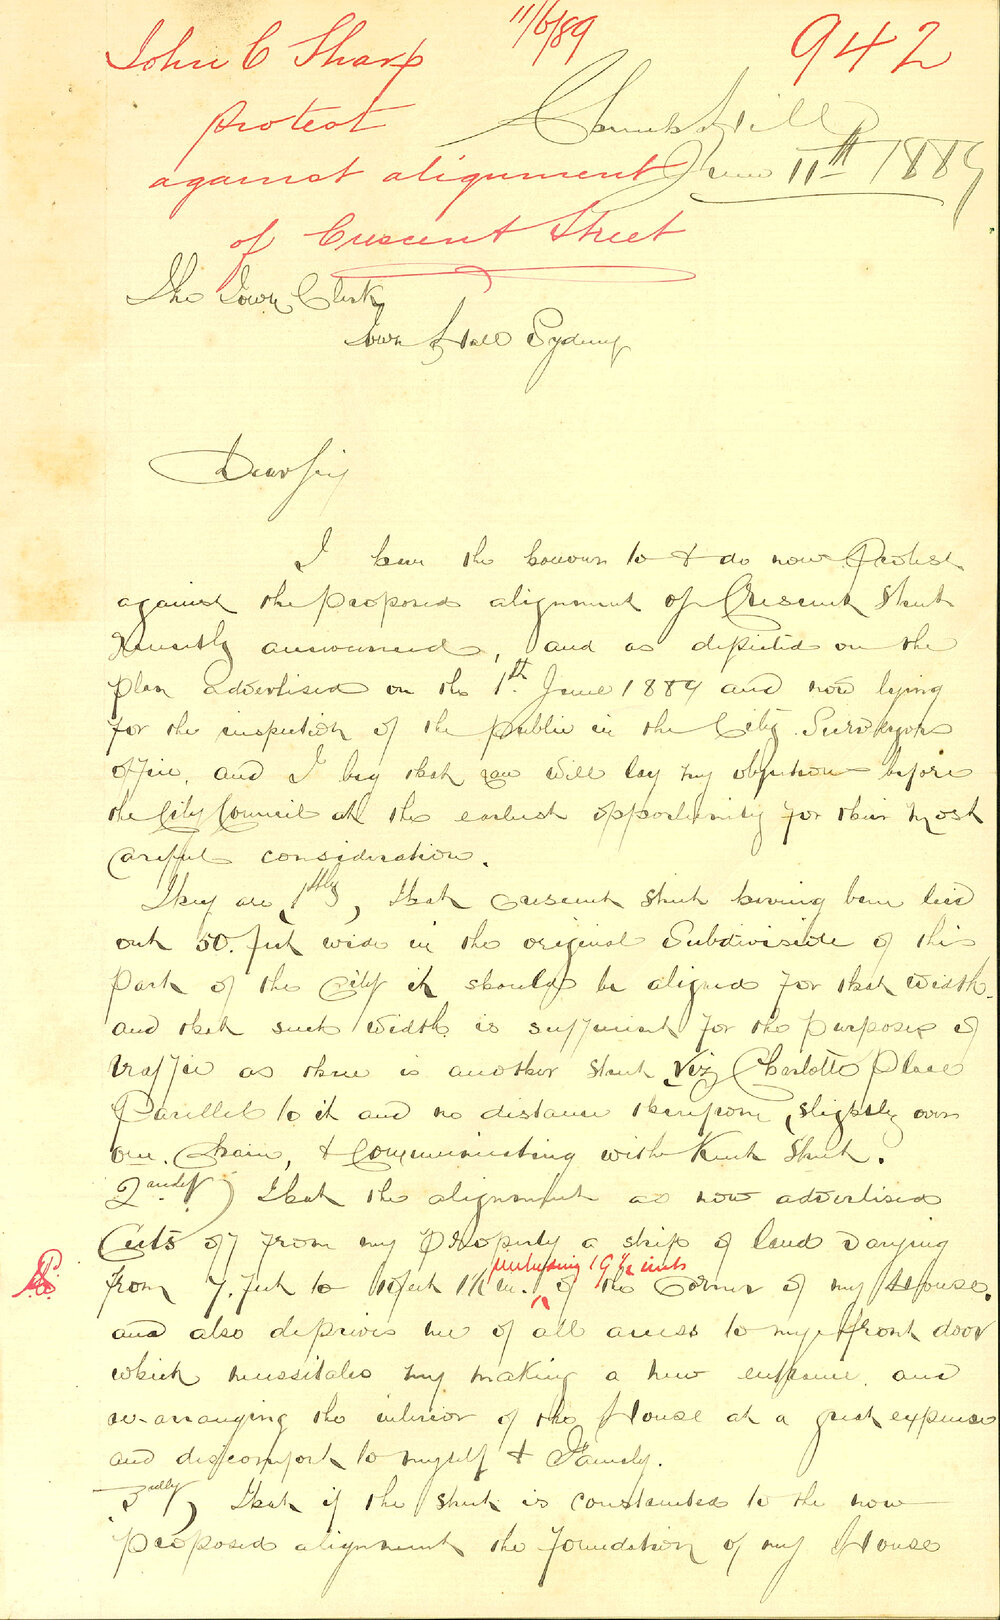 11/6/89
942
John C Sharp
protest
against alignment
of Crescent Street
Church Hill
June 11th 1889
The Town Clerk
Town Hall Sydney
Dear Sir
I have the honour to & do now Protest
against the proposed alignment of Crescent Street
recently announced, and as depicted on the
plan advertised on the 1th. June 1889 and now lying
for the inspection of the public in the City Surveyors
office, and I beg that you will lay my objections before
the City Council at the earliest opportunity for their most
careful consideration.
They are 1stly, That Crescent Street having been laid
out 50. feet wide in the original Subdivision of this
part of the City it should be aligned for that width.
and that such width is sufficient for the purposes of
traffic as there is another Street Viz Charlotte Place
Parellel to it and no distance therefrom, slightly over
one. Chain, & Communicating with Kent Street.
2andly) That the alignment as now advertised
Cuts off from my Property a strip of land varying
from 7. feet to feet 1½ in. of the Corner of my House.
including 19½ inches
and also deprives me of all access to my front door
which necessitates my making a new entrance. and
re-arranging the interior of the House at a great expense
and discomfort to myself & Family.
3rdly, That if the Street is constructed to the now
proposed alignment the foundation of my House